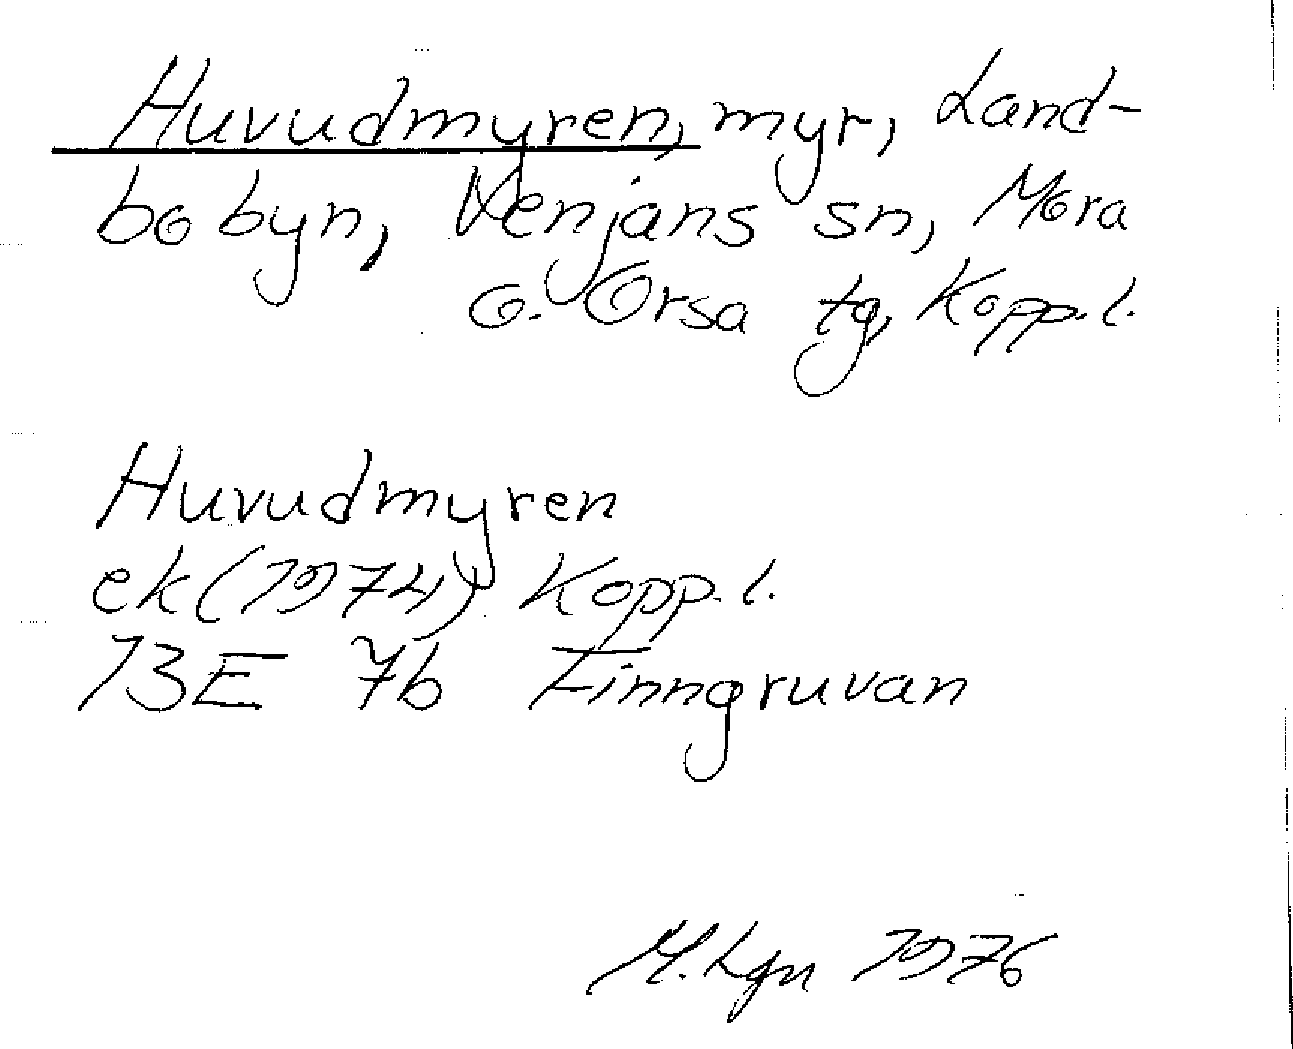 Huvudmyren, myr, Land-
bobyn, Venjans sn, Mora
o. Orsa tg, Kopp.l.
Huvudmyren
ek (1974) Kopp.l.
13E 7b Finngruvan
M. Lgn 1976